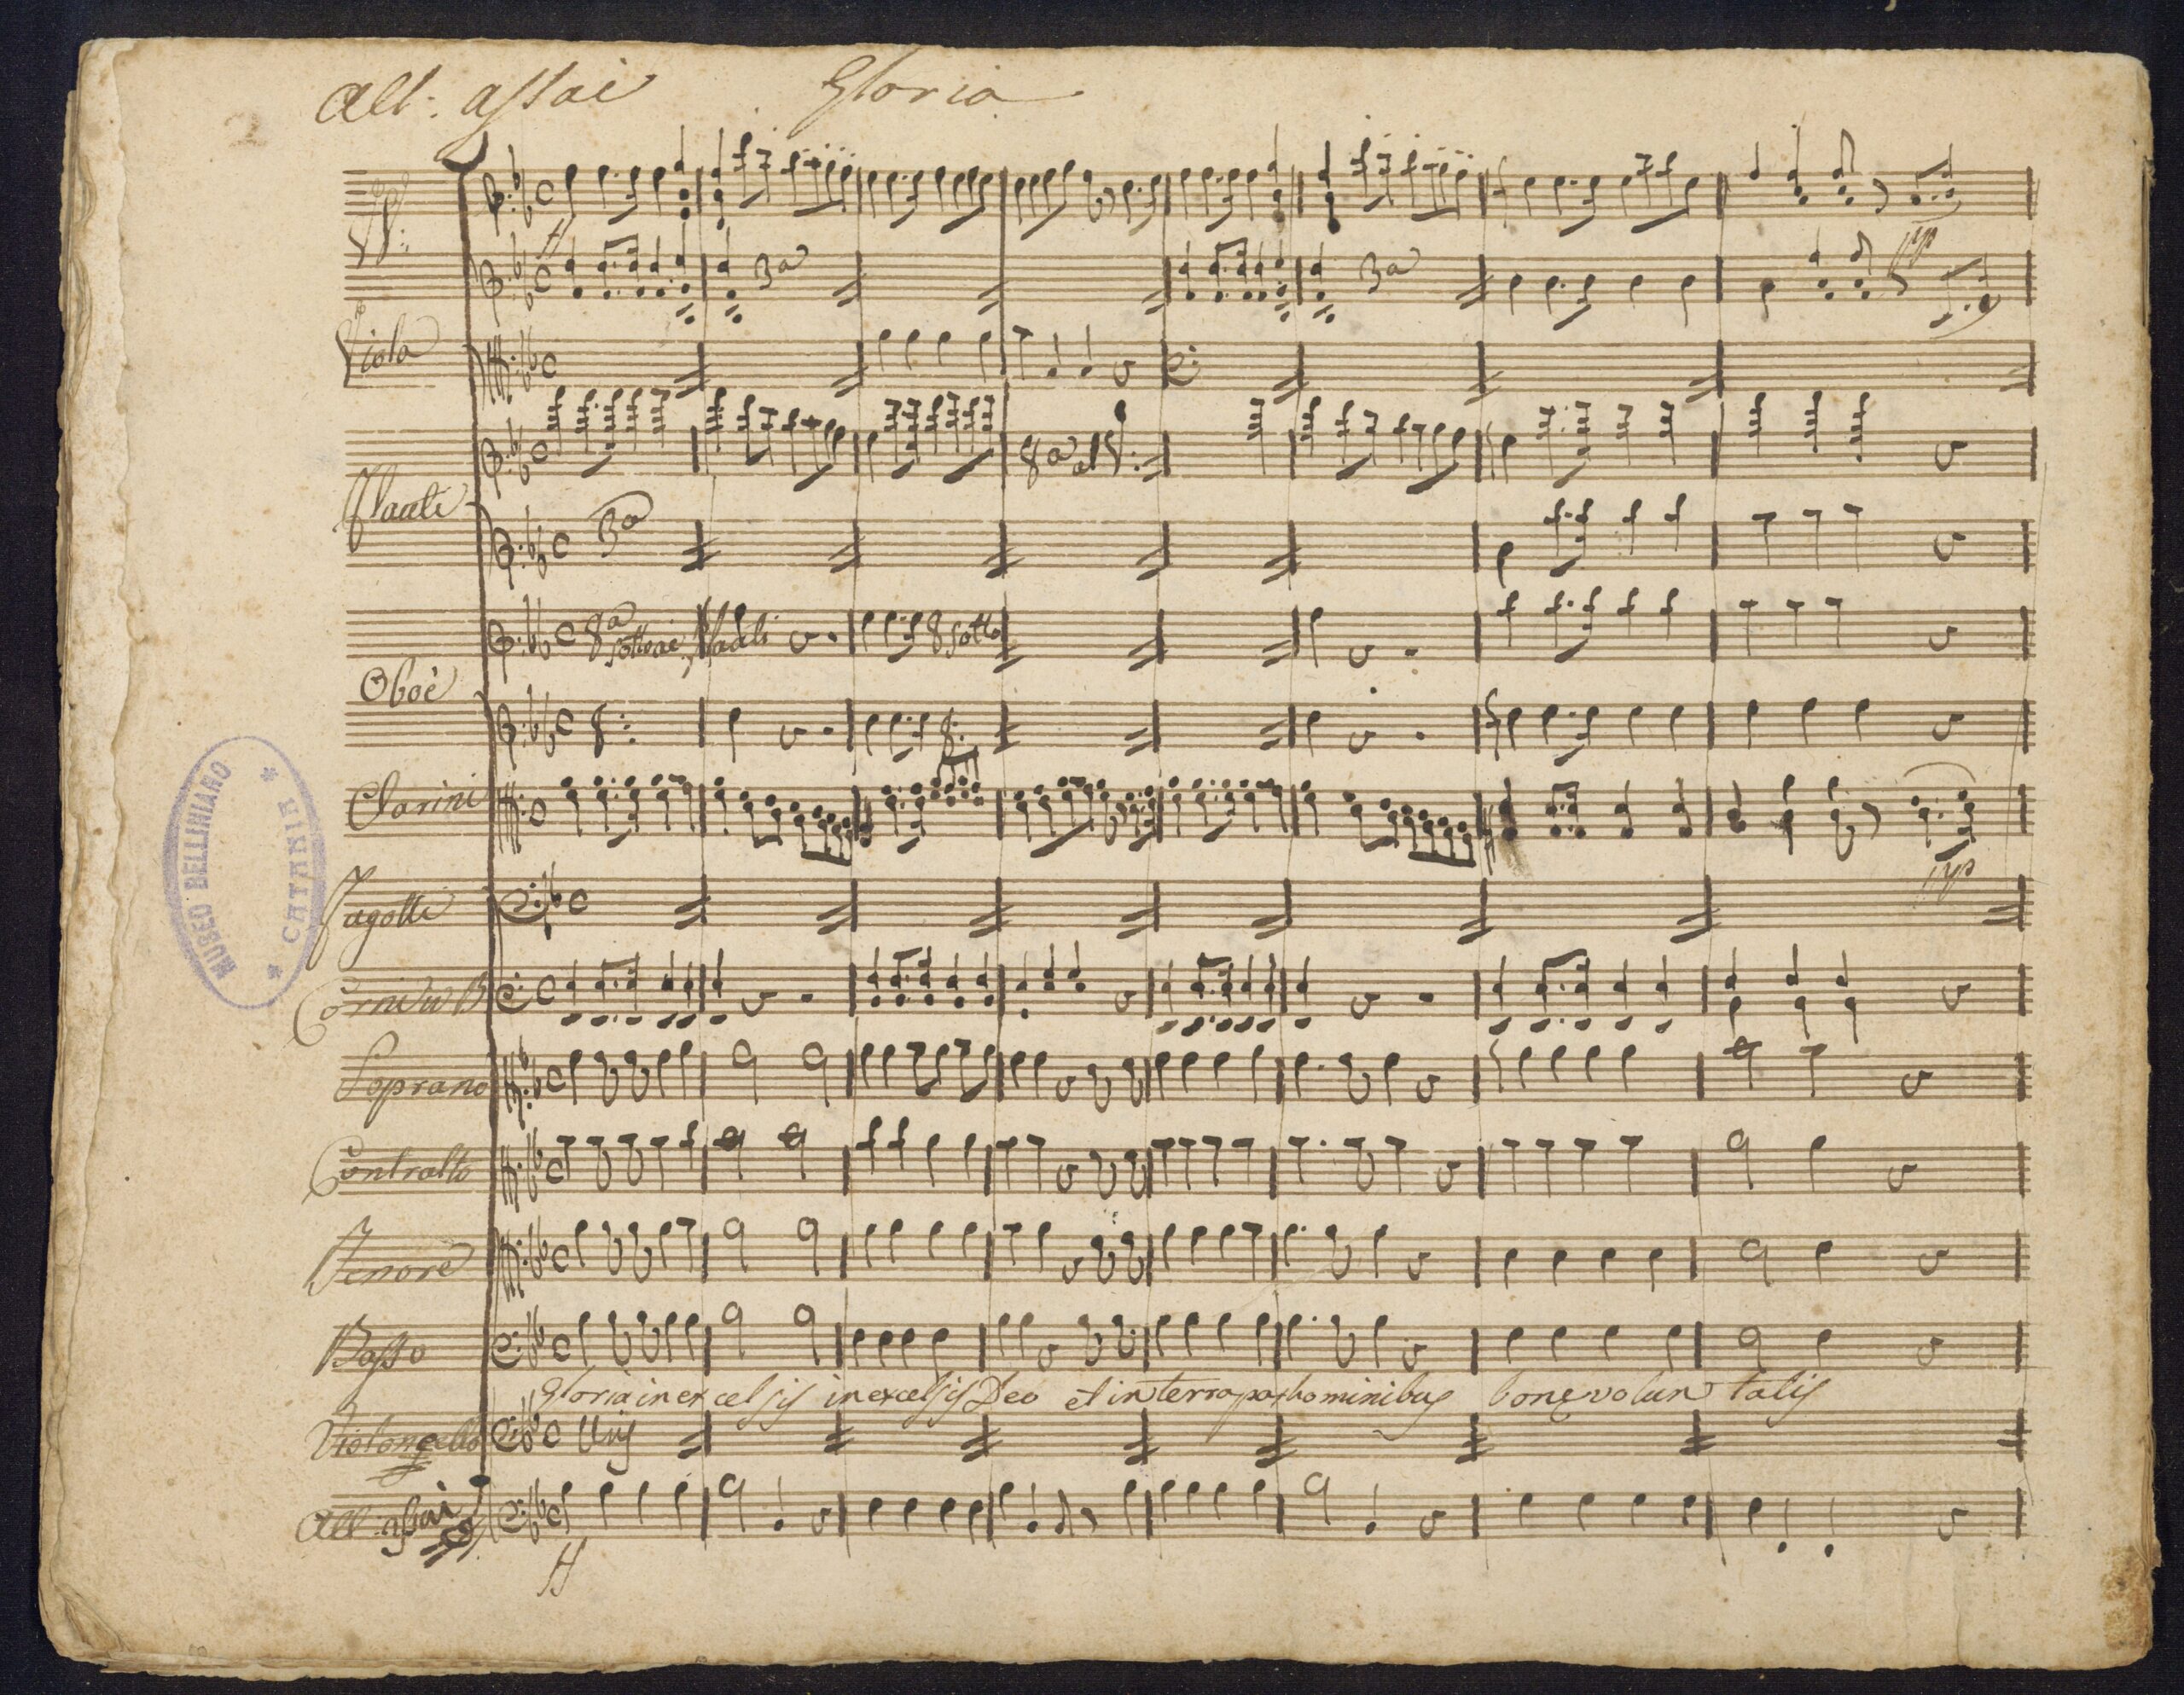 All: assai Gloria
VV:
ff
3a
3a
pp
Viola
Flauti
8a al
3a
Oboè
8a sotto ai Flauti 8 sotto
Clarini
Fagotti
pp
Corni in B
Soprano
Contralto
Tenore
Basso
Gloria in excelsis in excelsis Deo et in terra pax hominibus bone volun tatis
Violoncello
Unis
All: assai
ff
MUSEO BELLINIANO
* CATANIA *